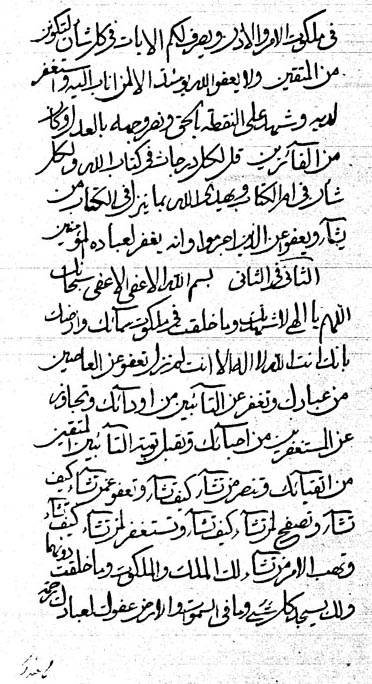 في ملكوت الامر والاذن ويصرف لكم الايات في كل شان لتكونن
من المتقين ولا يعفو الله يومئذ الا لمن اناب اليه واستغفر
لديه وشهد على النقطة بالحق ونصر وجهه بالعدل وكان
من الفائزين قل لكل درجات في كتاب الله ولكل
شان في ام الكتاب ويهدي الله بما ينزل في الكتاب من
يشآء ويعفو عن الذين اجرموا وانه يغفر لعباده المؤمنين
الثاني في الثاني بسم الله الاعفى الاعفى سبحانك
اللهم يا الهي لاشهدنك وما خلقت في ملكوت سمائك وارضك
بانك انت الله لا اله الا انت لم تزل تعفو عن العاصين
من عبادك وتغفر عن التائبين من اودائك وتجاوز
عن المستغفرين من احبائك وتقبل توبة التائبين المتقين
من اتقيائك وتنصر من تشآء كيف تشآء وتعفو عمن تشآء كيف
تشآء وتصفح لمن تشآء كيف تشآء وتستغفر لمن تشآء كيف تشآء
وتهب الامر من تشآء لك الملك والملكوت وما خلقت دونهما
ولك يسجد كل شيء وما في السموات والارض عفوك لعبادك